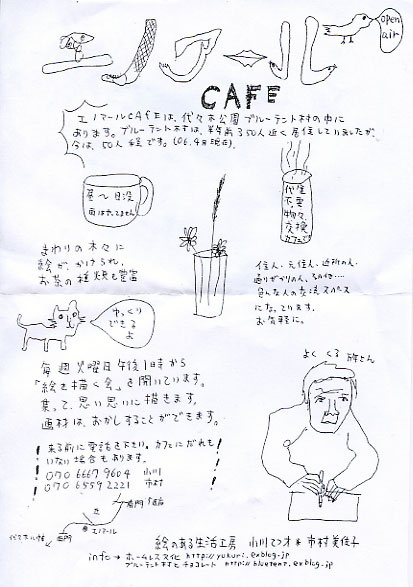 open
air
エノアール
CAFE
エノアールCAFEは、代々木公園ブルーテント村の中に
あります。ブルーテント村は、半年前350人近く居住していましたが、
今は、50人程です。(06.4月現在).
昼〜日没
雨はやってません
代金
不要
物々
交換
カフェ
まわりの木々に
絵が、かけられ、
お茶の種類も豊富
住人、元住人、近所の人、
通りがかりの人、
色んな人の交流スペース
になっています。
お気軽に。
ゆっくり
できる
よ
毎週火曜日午後1時から
「絵を描く会」を開いています。
集って、思い思いに描きます。
画材は、おかしすることができます。
よくくる
来る前に電話を下さい。カフェにだれも
いない場合もあります。
070 6667 9604 小川
070 6559 2221 市村
エノアール
絵のある生活工房 小川てつオ * 市村美佐子
info → ホームレス文化 http://yukuri.exblog.jp
ブルーテント村とチョコレート http://bluetent.exblog.jp